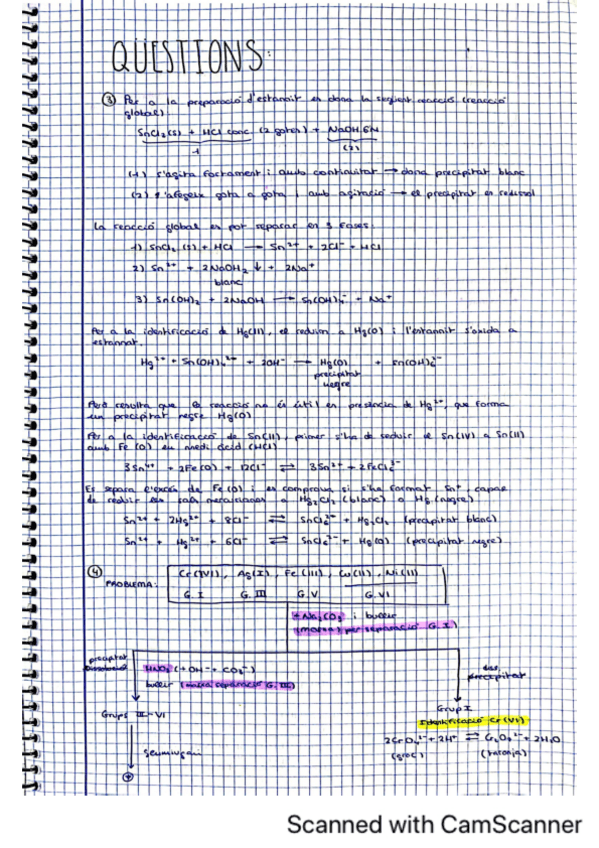 QÜESTIONS:
③ Per a la preparació d'estannit es dona la següent reacció (reacció
global)
SnCl₂(s) + HCl conc (2 gotes) + NaOH 6N
(1) (2)
(1) s'agita fortament i amb continuitat → dona precipitat blanc
(2) s'afegeix gota a gota i amb agitació → el precipitat es redissol
La reacció global es pot separar en 3 fases:
1) SnCl₂ (s) + HCl → Sn²⁺ + 2Cl⁻ + HCl
2) Sn²⁺ + 2NaOH₂ ↓ + 2Na⁺
blanc
3) Sn(OH)₂ + 2NaOH → Sn(OH)₄⁻ + Na⁺
Per a la identificació de Hg(II), es redueix a Hg(0) i l'estannit s'oxida a
estannat.
Hg²⁺ + Sn(OH)₄²⁻ + 2OH⁻ → Hg(0) + Sn(OH)₆²⁻
precipitat
negre
Però resulta que la reacció no és útil en presència de Hg²⁺, que forma
un precipitat negre Hg(0)
Per a la identificació de Sn(II), primer s'ha de reduir el Sn(IV) a Sn(II)
amb Fe(0) en medi àcid (HCl)
3Sn⁴⁺ + 2Fe(0) + 12Cl⁻ ⇌ 3Sn²⁺ + 2FeCl₆³⁻
Es separa l'excés de Fe(0) i es comprova si s'ha format Sn²⁺, capaç
de reduir a Hg₂Cl₂ (blanc) o Hg (negre)
Sn²⁺ + 2Hg²⁺ + 8Cl⁻ ⇌ SnCl₆²⁻ + Hg₂Cl₂ (precipitat blanc)
Sn²⁺ + Hg²⁺ + 6Cl⁻ ⇌ SnCl₆²⁻ + Hg(0) (precipitat negre)
④ PROBLEMA: Cr(VI), Ag(I), Fe(III), Co(II), Ni(II)
G. I G. III G. V G. VI
+ Na₂CO₃ i bullir
(marxa) per separació G. I)
precipitat
dissolució
HNO₃ (→ OH⁻ + CO₃²⁻)
bullir (marxa separació G. III)
precipitat
Grups III-VI
Grup I
Identificació Cr(VI)
2CrO₄²⁻ + 2H⁺ ⇌ Cr₂O₇²⁻ + 2H₂O
(groc) (taronja)
Scanned with CamScanner